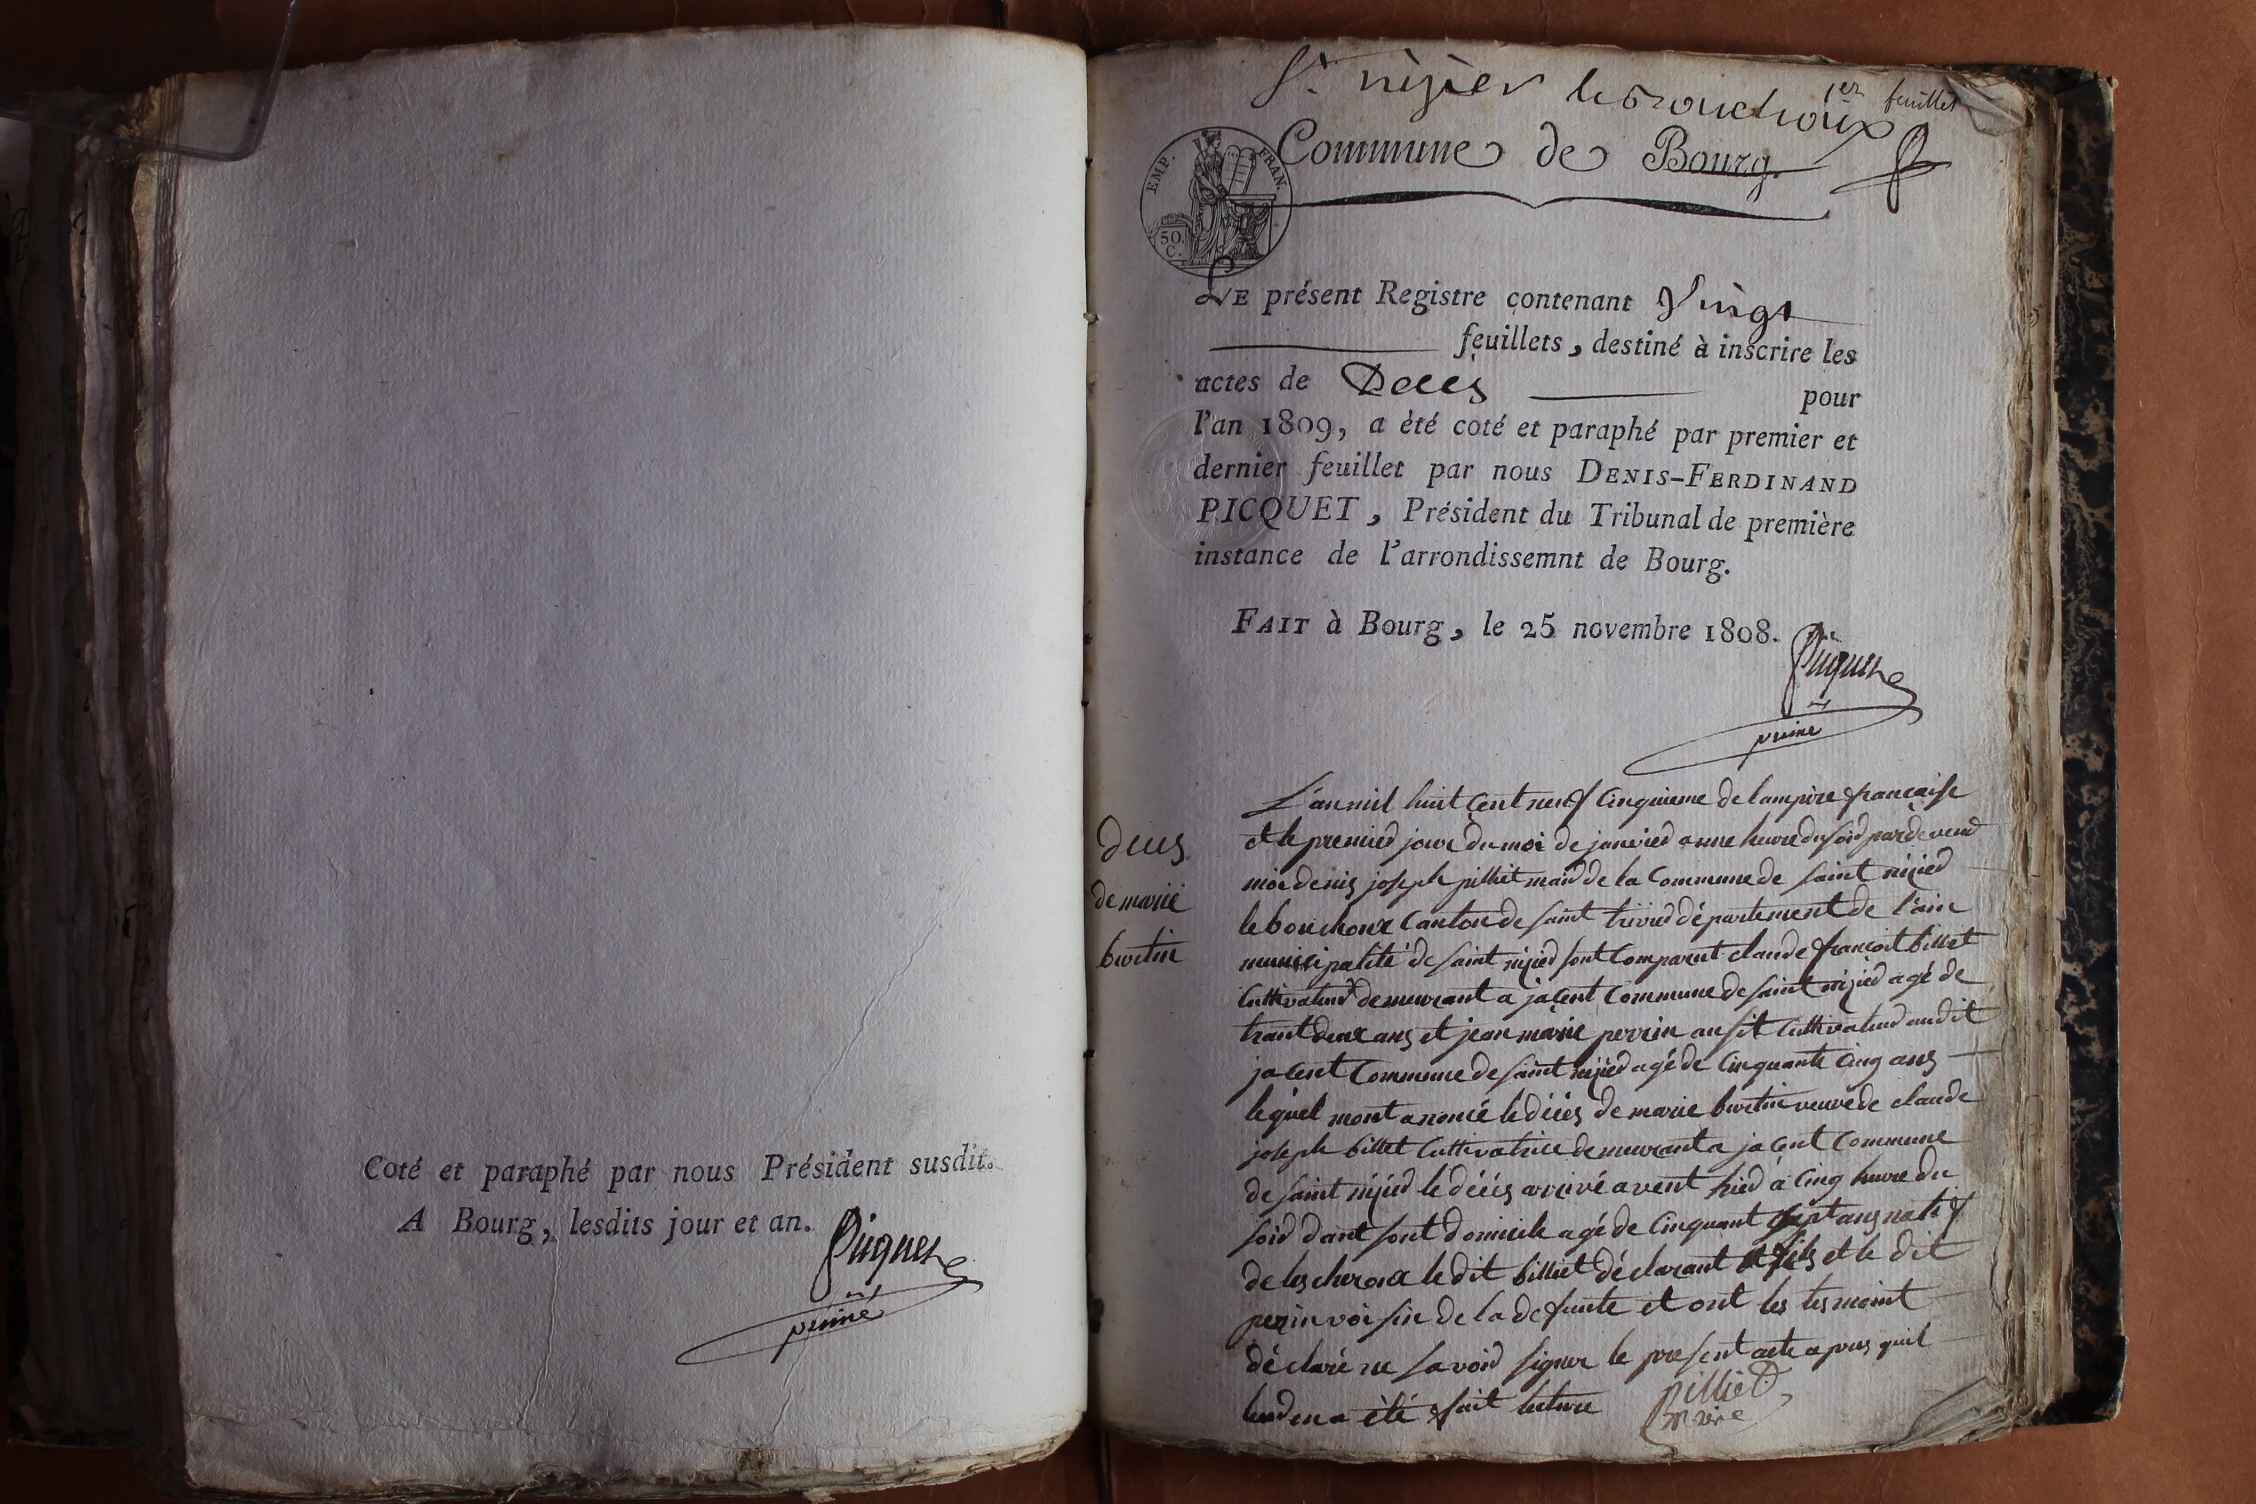 Coté et paraphé par nous Président susdit.
A Bourg, lesdits jour et an.
Picquet
prime
St. nizier lebouchoux
1er feuillet
Commune de Bourg.
EMP. FRAN.
50.
C.
LE présent Registre contenant Vingt
feuillets, destiné à inscrire les
actes de Deces pour
l'an 1809, a été coté et paraphé par premier et
dernier feuillet par nous DENIS-FERDINAND
PICQUET, Président du Tribunal de première
instance de l'arrondissemnt de Bourg.
FAIT à Bourg, le 25 novembre 1808.
Picquet
prime
deces
de marie
burtin
L'an mil huit cent neuf cinquieme de lampire francaise
et le premied jour du moi de janvied onne heure du soid pardevend
moi denis joseph pilliet maid de la Commune de saint nizied
le bouchoux Canton de saint trivied département de l'ain
municipalité de saint nizied sont Comparut claude françoit billet
Cultivateud demeurant a jacent Commune de saint nizied agé de
trant deux ans et jean marie perrin ausit Cultivateud audit
jacent Commune de saint nizied agé de Cinquante Cinq ans
lequel mont anoncé le décés de marie burtin veuve de claude
joseph billet Cultivatrice demeurant a jacent Commune
de saint nizied le décés arrivé avent hied à Cinq heure du
soid dant sont domicile agé de Cinquant sept ans natif
de lescheroux le dit billiet déclarant fils et le dit
perin voisin de la defunte et ont les tesmoint
déclaré ne savoid signer le present acte apres quil
leud en a été fait lecture
pilliet
maire